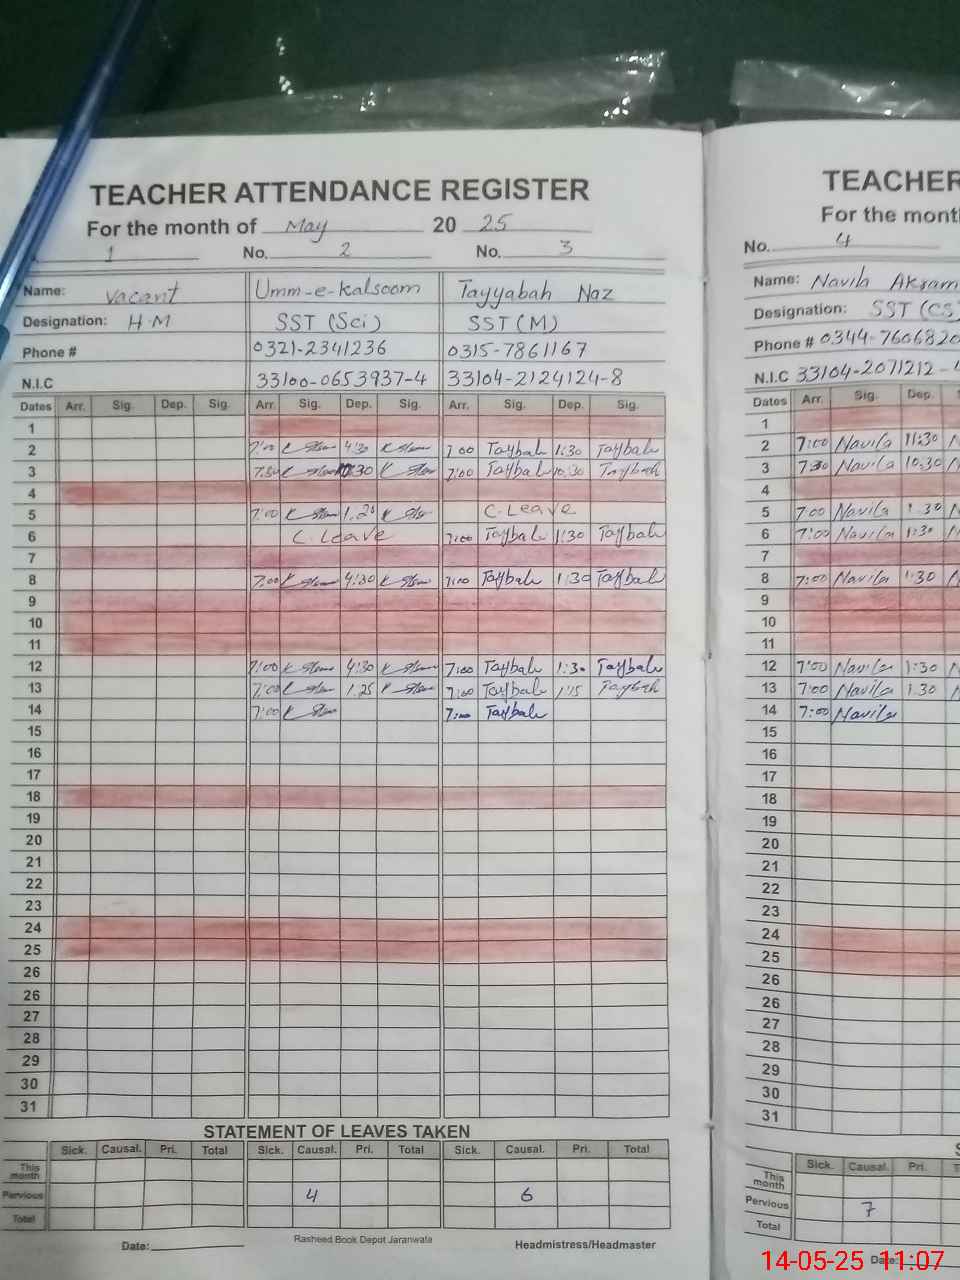 TEACHER ATTENDANCE REGISTER
For the month of May 2025
1 No. 2 No. 3
Name: Vacant Umm-e-Kalsoom Tayyabah Naz
Designation: H.M SST (Sci) SST (M)
Phone # 0321-2341236 0315-7861167
N.I.C 33100-0653937-4 33104-2124124-8
Dates Arr. Sig. Dep. Sig. Arr. Sig. Dep. Sig. Arr. Sig. Dep. Sig.
1
2 7:00 4:30 7:00 Taybah 1:30 Taybah
3 7:00 Taybah 10:30 Taybah
4
5 7:00 1.20 C.Leave
6 C.Leave 7:00 Taybah 1:30 Taybah
7
8 7:00 4:30 7:00 Taybah 1:30 Taybah
9
10
11
12 7:00 4:30 7:00 Taybah 1:30 Taybah
13 7:00 1.25 7:00 Taybah 1:15 Taybah
14 7:00 7:00 Taybah
15
16
17
18
19
20
21
22
23
24
25
26
26
27
28
29
30
31
STATEMENT OF LEAVES TAKEN
Sick. Causal. Pri. Total Sick. Causal. Pri. Total Sick. Causal. Pri. Total
This month
Pervious 4 6
Total
Date: Rasheed Book Depot Jaranwala Headmistress/Headmaster
TEACHER
For the mont
No. 4
Name: Navila Akram
Designation: SST (CS)
Phone # 0344-7606820
N.I.C 33104-2071212-
Dates Arr. Sig. Dep.
1
2 7:00 Navila 11:30
3 7:30 Navila 10.30
4
5 7:00 Navila 1.30
6 7:00 Navila 1:30
7
8 7:00 Navila 1:30
9
10
11
12 7:00 Navila 1:30
13 7:00 Navila 1.30
14 7:00 Navila
15
16
17
18
19
20
21
22
23
24
25
26
26
27
28
29
30
31
Sick. Causal. Pri.
This month
Pervious 7
Total
Date:
14-05-25 11:07